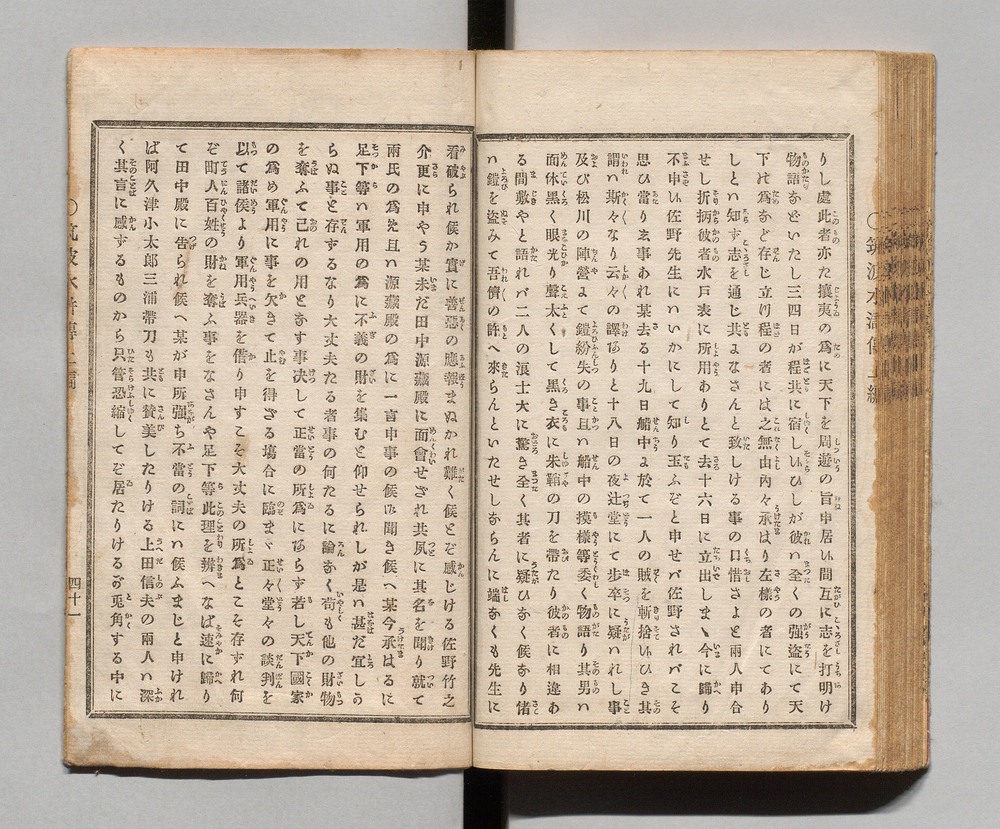 りし處此者亦た攘夷の爲に天下を周遊の旨申居い間互に志を打明け
物語あどいたし三四日が程共に宿しいひしが彼い全くの强盜にて天
下ための爲あど存じ立い程の者には之無由內々承はり左樣の者にてあり
しとい知ず志を通じ共よなさんと致しける事の口惜さよと兩人申合
せし折柄彼者水戸表に所用ありとて去十六日に立出しまゝ今に歸り
不申い佐野先生にいいかにして知り玉ふぞと申せバ佐野されバこそ
思ひ當りゑ事あれ某去る十九日船中よ於て一人の賊を斬捨いひき其
謂い斯々なり云々の譯ありと十八日の夜辻堂にて步卒に疑いれし事
及び松川の陣營よて鎧紛失の事且い船中の摸樣等委く物語り其男い
面体黒く眼光り聲太くして黒き衣に朱鞘の刀を帶たり彼者に相違あ
る間敷やと語れバ二人の浪士大に驚き全く其者に疑ひあく候あり偖
い鎧を盜みて吾儕の許へ來らんといたせしあらんに端あくも先生に
看破られ候か實に善惡の應報まぬかれ難く候とぞ感じける佐野竹之
介更に申やう某未だ田中源藏殿に面會せざれ共夙に其名を聞り就て
兩氏の爲め且い源藏殿の爲に一言申事の候い聞き候へ某今承はるに
足下等い軍用の爲に不義の財を集むと仰せられしが是い甚だ宜しか
らぬ事と存ずるなり大丈夫たる者事の何たるに論あく苟も他の財物
を奪ふて己れの用とあす事决して正當の所爲にあらず若し天下國家
の爲め軍用に事を欠きて止を得ざる塲合に臨まゞ正々堂々の談判を
以て諸侯より軍用兵器を借り申すこそ大丈夫の所爲とこそ存ずれ何
ぞ町人百姓の財を奪ふ事をなさんや足下等此理を辨へなば速に歸り
て田中殿に告られ候へ某が申所强ち不當の詞にい候ふまじと申けれ
ば阿久津小太郎三浦帶刀も共に賛美したりける上田信夫の兩人い深
く其言に感ずるものから只管恐縮してぞ居たりけるが兎角する中に
四十一